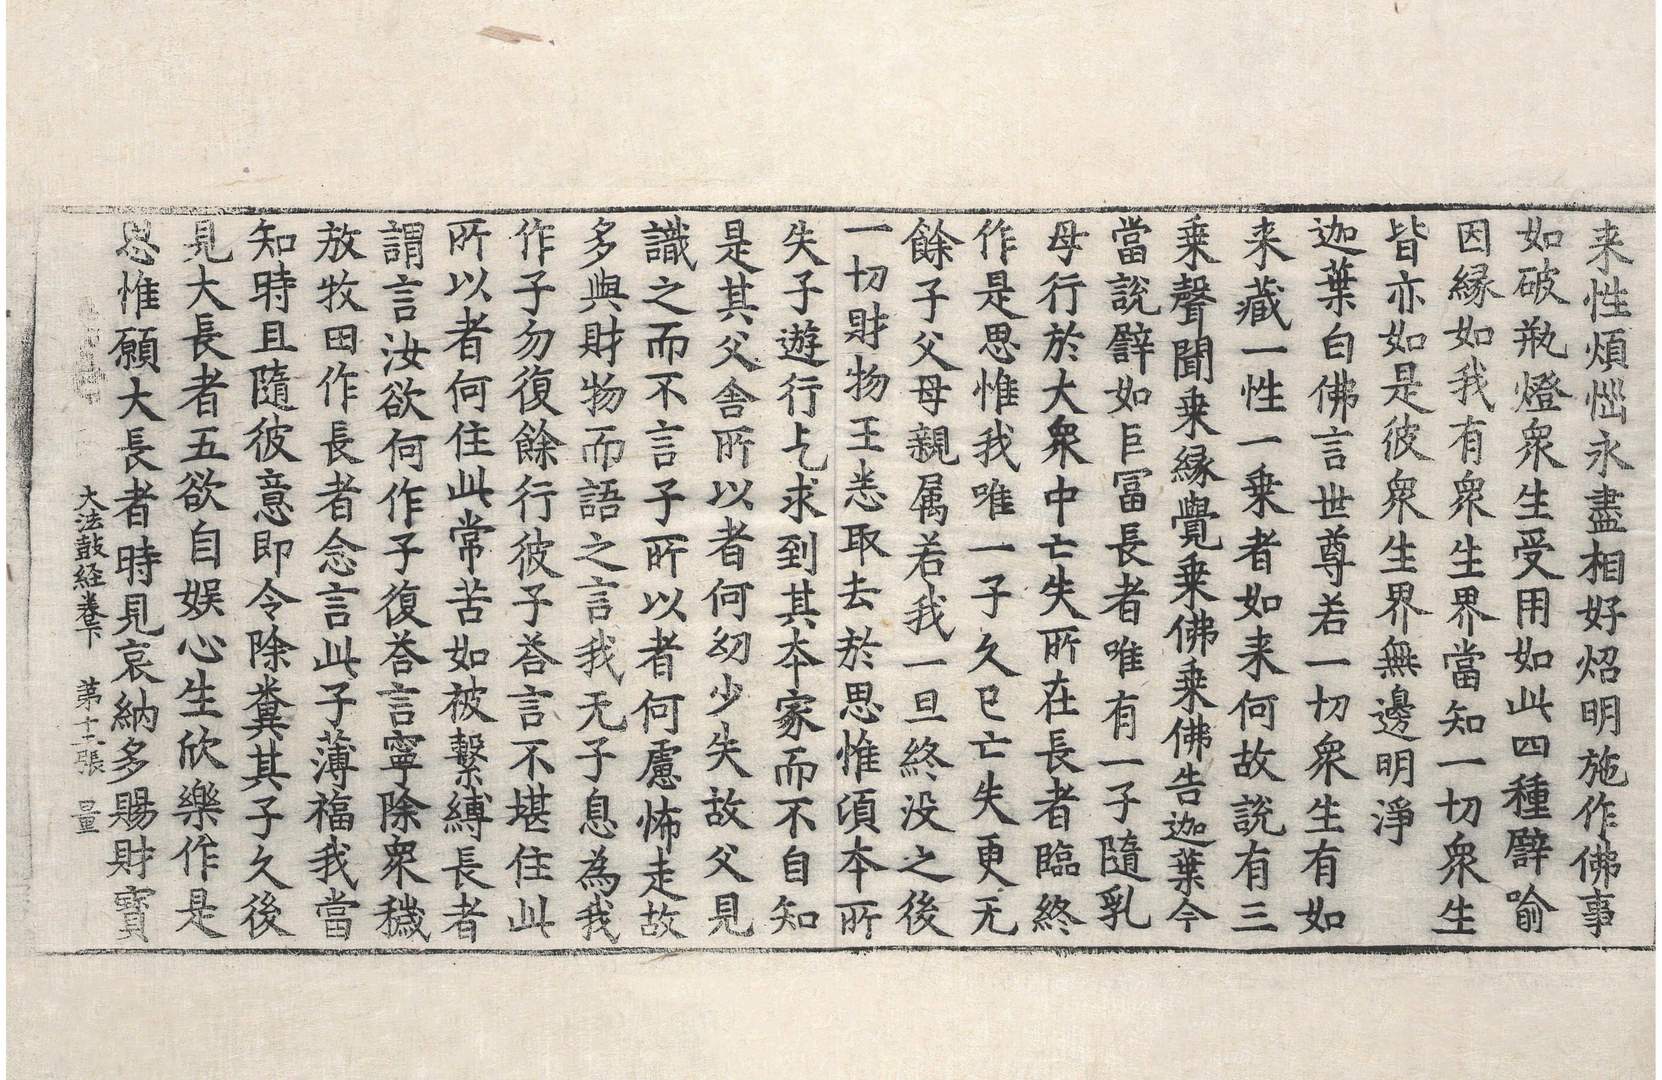 来性煩惱永盡相好炤明施作佛事
如破瓶燈衆生受用如此四種譬喻
因縁如我有衆生界當知一切衆生
皆亦如是彼衆生界無邊明淨
迦葉白佛言世尊若一切衆生有如
来藏一性一乗者如来何故說有三
乗聲聞乗縁覺乗佛乗佛告迦葉今
當說譬如巨冨長者唯有一子隨乳
母行於大衆中亡失所在長者臨終
作是思惟我唯一子久已亡失更无
餘子父母親属若我一旦終没之後
一切財物王悉取去於思惟頃本所
失子遊行乞求到其本家而不自知
是其父舍所以者何幼少失故父見
識之而不言子所以者何慮怖走故
多與財物而語之言我无子息為我
作子勿復餘行彼子荅言不堪住此
所以者何住此常苦如被繫縛長者
謂言汝欲何作子復荅言寧除衆穢
放牧田作長者念言此子薄福我當
知時且隨彼意即令除糞其子久後
見大長者五欲自娱心生欣樂作是
思惟願大長者時見哀納多賜財寶
大法鼓経卷下 第十二張 量